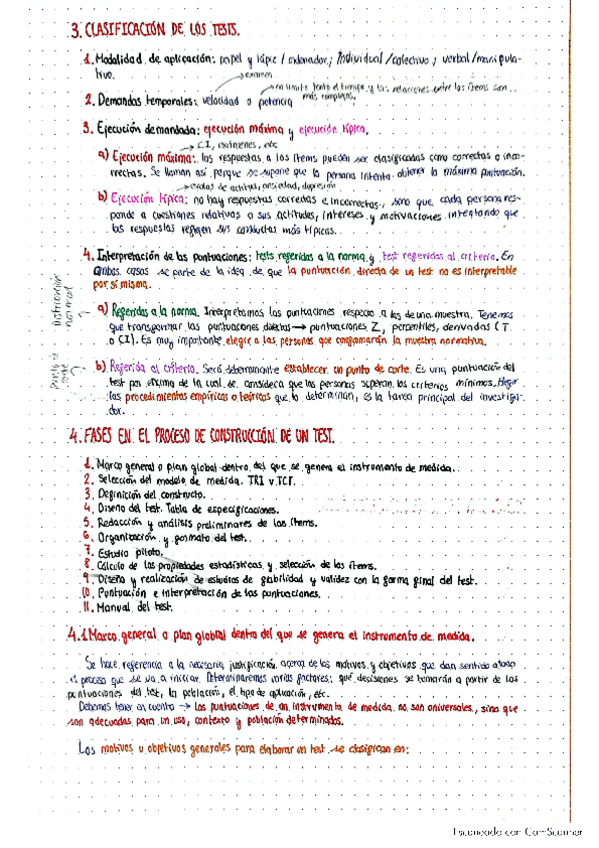 3. CLASIFICACIÓN DE LOS TESTS.
1. Modalidad de aplicación: papel y lápiz / ordenador; Individual / colectivo; verbal / manipula-
tivo.
→ examen
→ no límite tanto el tiempo y las relaciones entre los ítems son
más complejas.
2. Demandas temporales: velocidad o potencia
3. Ejecución demandada: ejecución máxima y ejecución típica.
→ CI, exámenes, etc
a) Ejecución máxima: las respuestas a los ítems pueden ser clasificadas como correctas o inco-
rrectas. Se llaman así porque se supone que la persona intenta obtener la máxima puntuación.
→ escalas de actitud, ansiedad, depresión
b) Ejecución típica: no hay respuestas correctas e incorrectas, sino que cada persona res-
ponde a cuestiones relativas a sus actitudes, intereses y motivaciones intentando que
las respuestas reflejen sus conductas más típicas.
4. Interpretación de las puntuaciones: tests referidos a la norma y test referidos al criterio. En
ambos casos se parte de la idea de que la puntuación directa de un test no es interpretable
por sí misma.
Distribución
normal
a) Referidas a la norma. Interpretamos las puntuaciones respecto a las de una muestra. Tenemos
que transformar las puntuaciones directas → puntuaciones Z, percentiles, derivadas (T
o CI). Es muy importante elegir a las personas que conformarán la muestra normativa.
Punto de
corte
b) Referida al criterio. Será determinante establecer un punto de corte. Es una puntuación del
test por encima de la cual se considera que las personas superan los criterios mínimos. Elegir
los procedimientos empíricos o teóricos que lo determinan, es la tarea principal del investiga-
dor.
4. FASES EN EL PROCESO DE CONSTRUCCIÓN DE UN TEST.
1. Marco general o plan global dentro del que se genera el instrumento de medida.
2. Selección del modelo de medida. TRI y TCT.
3. Definición del constructo.
4. Diseño del test. Tabla de especificaciones.
5. Redacción y análisis preliminares de los ítems.
6. Organización y formato del test.
7. Estudio piloto.
8. Cálculo de las propiedades estadísticas y selección de los ítems.
9. Diseño y realización de estudios de fiabilidad y validez con la forma final del test.
10. Puntuación e interpretación de las puntuaciones.
11. Manual del test.
4.1 Marco general o plan global dentro del que se genera el instrumento de medida.
Se hace referencia a la necesaria justificación acerca de los motivos y objetivos que dan sentido a todo
el proceso que se va a iniciar. Determinaremos varios factores: qué decisiones se tomarán a partir de las
puntuaciones del test, la población, el tipo de aplicación, etc.
Debemos tener en cuenta → las puntuaciones de un instrumento de medida no son universales, sino que
son adecuadas para un uso, contexto y población determinados.
Los motivos u objetivos generales para elaborar un test se clasifican en:
Escaneado con CamScanner